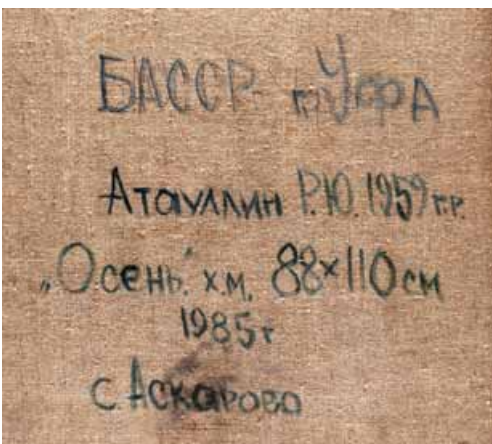 БАССР г. Уфа
Атауллин Р.Ю. 1959 г.р.
„Осень" х.м. 88×110 см
1985 г
с Аскарово